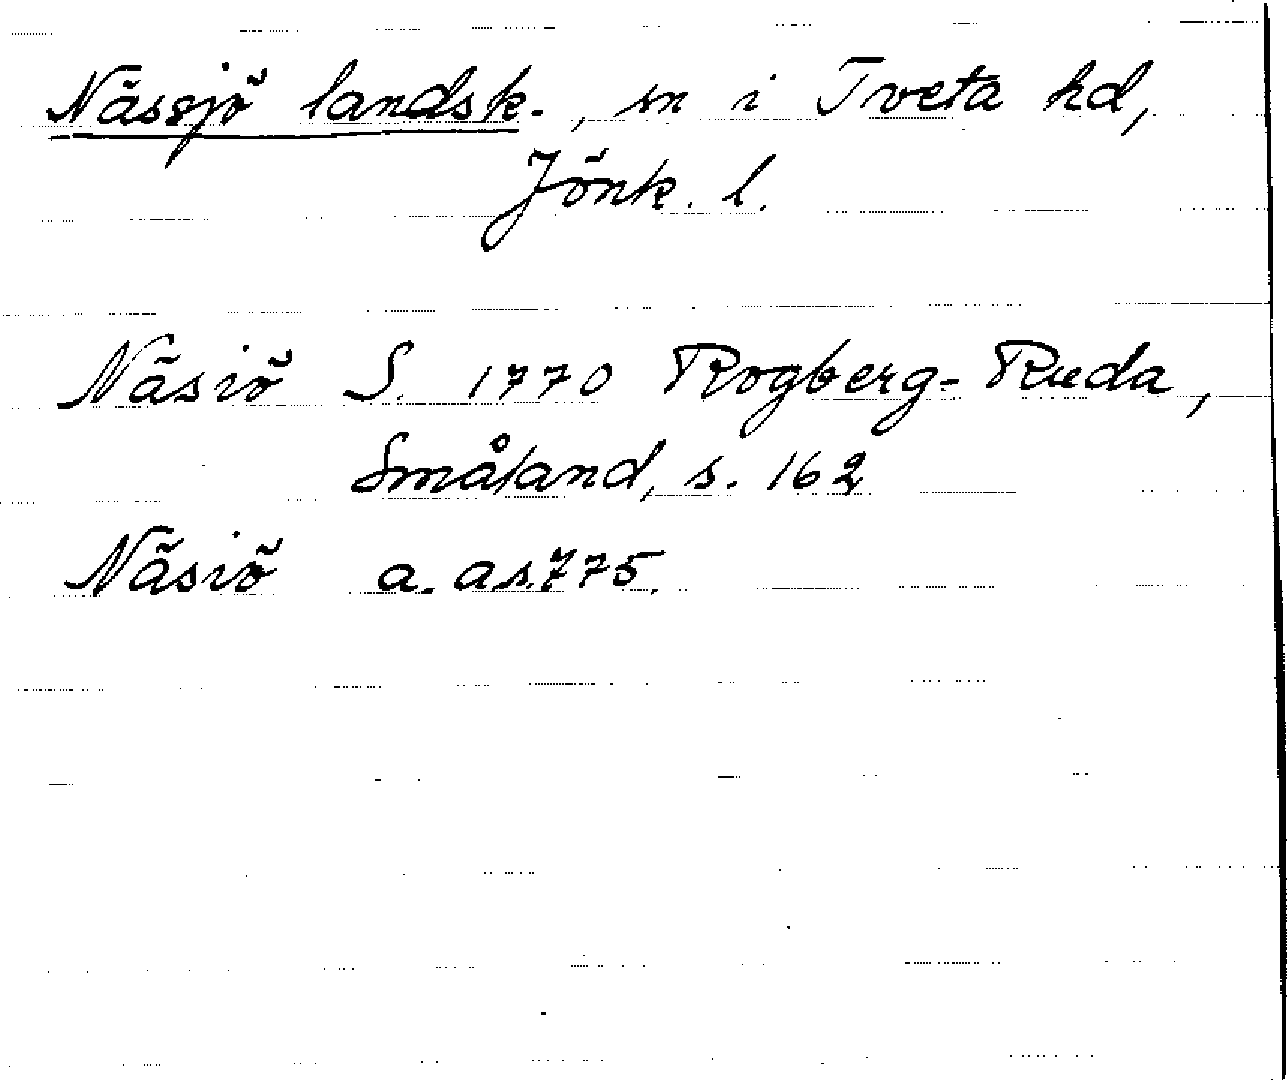 Nässjö landsk., sn i Tveta hd,
Jönk. l.
Näsiö S. 1770 Rogberg-Ruda,
Småland, s. 162
Näsiö a. a.s.775.